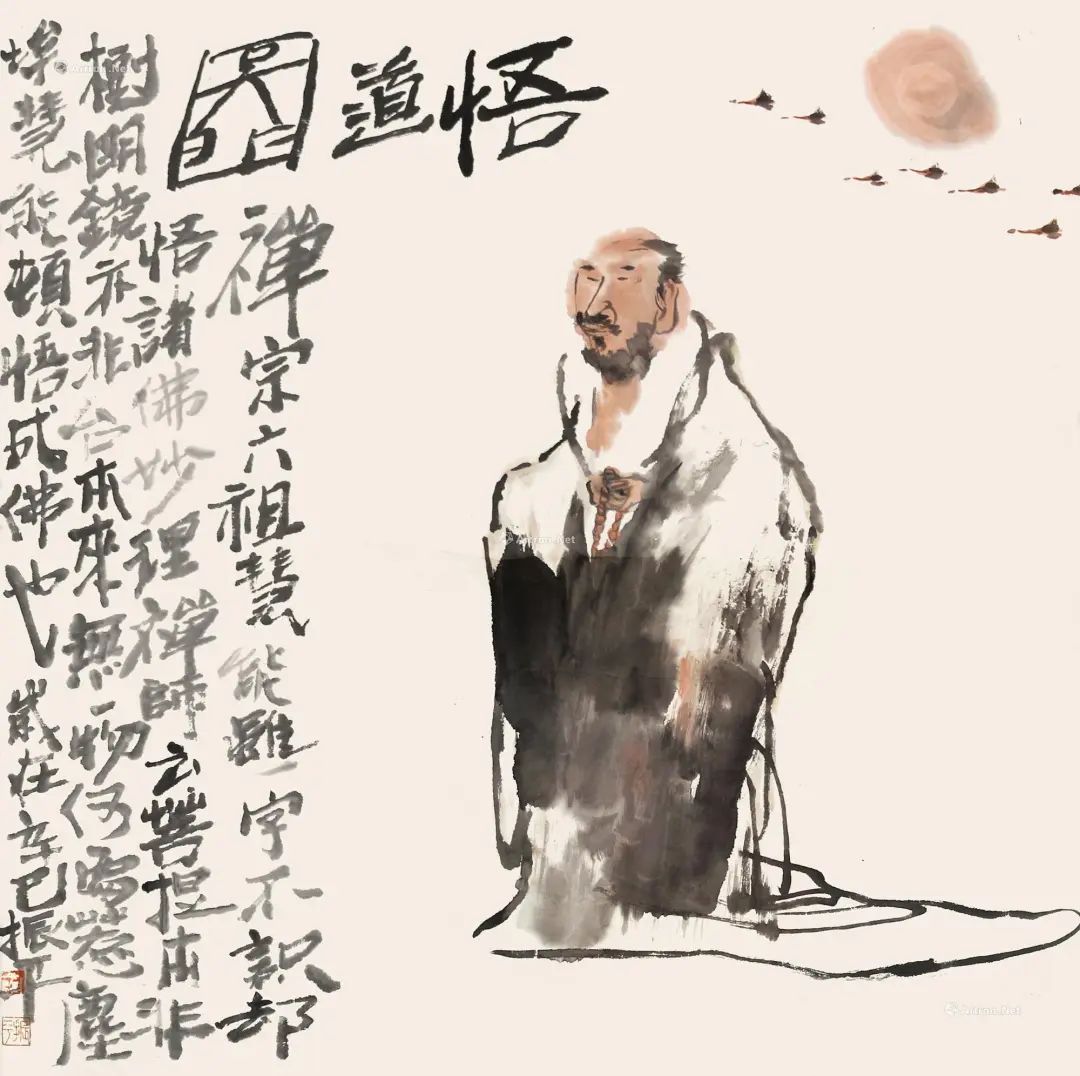 悟道圖
禪宗六祖慧能雖一字不識却
悟諸佛妙理禪師云菩提本非
樹明鏡亦非台本來無一物何處惹塵
埃慧能頓悟成佛也歲在辛巳振平
Artron.Net
Artron.Net
Artron.Net